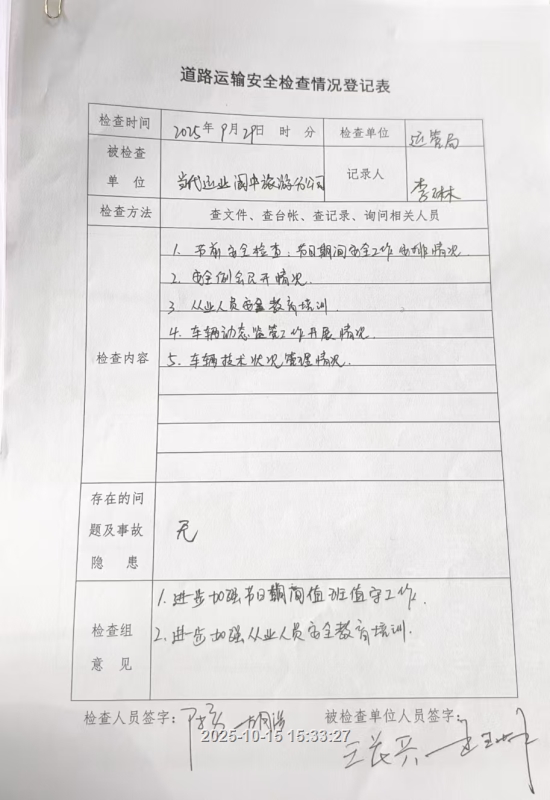 道路运输安全检查情况登记表
检查时间 2025年9月29日 时 分 检查单位 运管局
被检查单位 当代运业阆中旅游分公司 记录人 李琳
检查方法 查文件、查台帐、查记录、询问相关人员
检查内容
1. 节前安全检查;节日期间安全工作安排情况.
2. 安全例会召开情况.
3 从业人员安全教育培训.
4. 车辆动态监管工作开展情况.
5. 车辆技术状况管理情况.
存在的问题及事故隐患 无
检查组意见
1. 进步加强节日期间值班值守工作.
2. 进步加强从业人员安全教育培训.
检查人员签字: 被检查单位人员签字:
2025-10-15 15:33:27